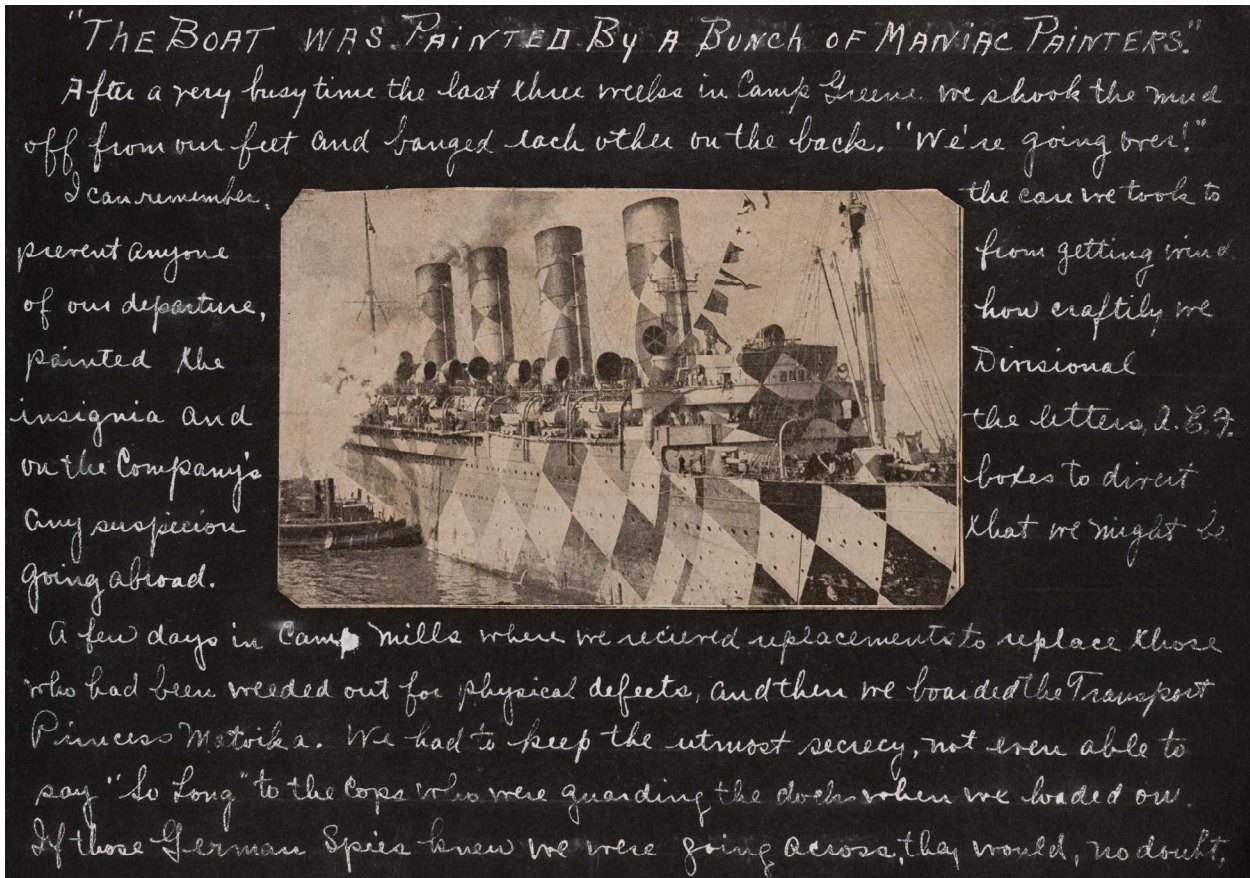 "THE BOAT WAS PAINTED By A BUNCH OF MANIAC PAINTERS."
After a very busy time the last three weeks in Camp Greene we shook the mud
off from our feet and banged each other on the back. "We're going over!"
I can remember, the care we took to
prevent anyone from getting wind
of our departure, how craftily we
painted the Divisional
insignia and the letters, A.E.F.
on the Company's boxes to divert
any suspicion that we might be
going abroad.
A few days in Camp Mills where we recieved replacements to replace those
who had been weeded out for physical defects, and then we boarded the Transport
Princess Matoika. We had to keep the utmost secrecy, not even able to
say "So Long" to the Cops who were guarding the docks when we loaded on.
If those German Spies knew we were going across, they would, no doubt,